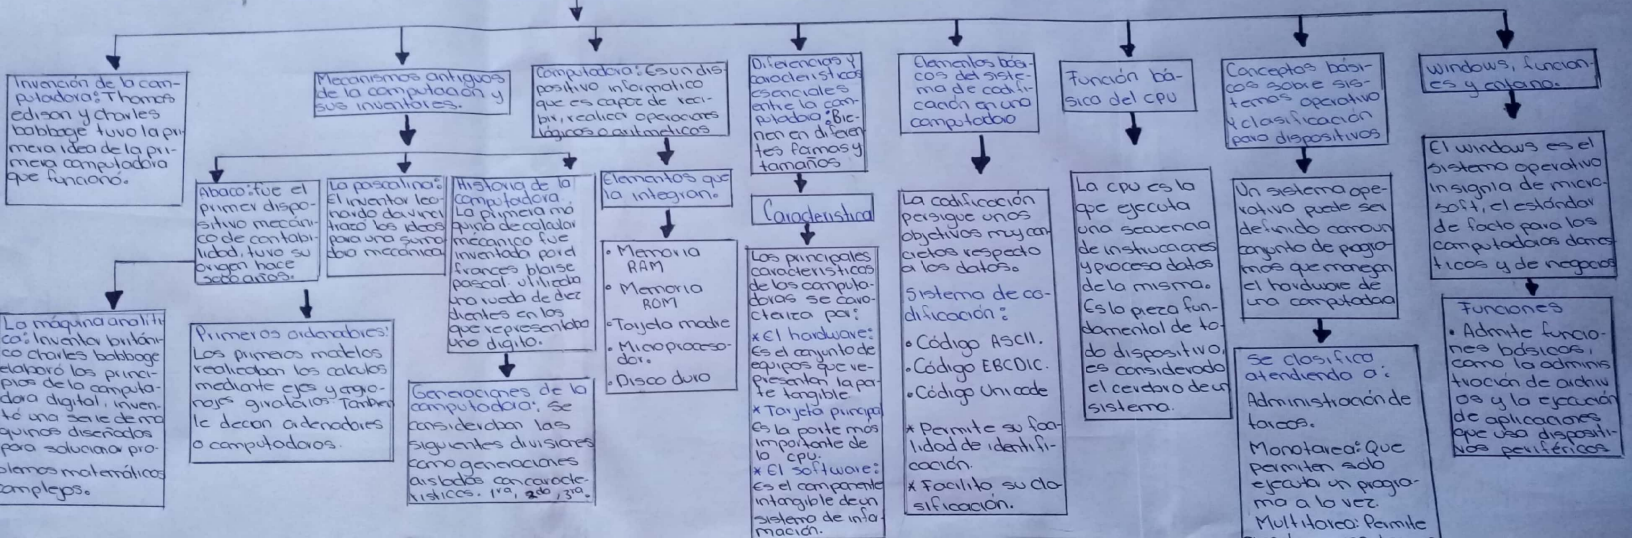 Invención de la com-
putadora: Thomas
edison y charles
babbage tuvo la pri
mera idea de la pri-
mera computadora
que funcionó.
Mecanismos antiguos
de la computación y
sus inventores.
Abaco: fue el
primer dispo-
sitivo mecáni-
co de contabi-
lidad, tuvo su
origen hace
5000 años.
La pascalina:
El inventor leo-
nardo davinci
trazó las ideas
para una suma
dora mecánica
Historia de la
computadora.
La primera má
quina de calcular
mecánico fue
inventada por el
frances blaise
pascal. utilizaba
una rueda de diez
dientes en los
que representaba
uno digito.
La máquina analíti
ca: Inventor británi
co charles babbage
elaboró los princi-
pios de la computa-
dora digital, inven-
tó una serie de má
quinas diseñadas
para solucionar pro-
blemas matemáticos
complejos.
Primeros ordenadores:
Los primeros modelos
realizaban los calculos
mediante ejes y engra-
najes giratorios. También
le decian ordenadores
o computadoras.
Generaciones de la
computadora: se
consideraban las
siguientes divisiones
como generaciones
aisladas con caracte-
risticas. 1ra, 2da, 3ra.
Computadora: Es un dis-
positivo informatico
que es capaz de reci-
bir, realizar operaciones
lógicas o aritméticos
Elementos que
la integran.
• Memoria
RAM
• Memoria
ROM
• Tarjeta madre
• Microproceso-
dor.
• Disco duro
Diferencias y
características
esenciales
entre la com-
putadora: Bie-
nen en diferen
tes formas y
tamaños
Característica
Las principales
características
de las computa-
doras se cara-
cteriza por:
* El hardware:
Es el conjunto de
equipos que re-
presentan la pa-
te tangible
* Tarjeta principal
Es la parte más
importante de
la cpu.
* El software:
Es el componente
intangible de un
sistema de info-
mación.
Elementos bási-
cos del siste-
ma de codifi-
cación en una
computadora
La codificación
persigue unos
objetivos muy con
cretos respecto
a los datos.
Sistema de co-
dificación:
• Código ASCII.
• Código EBCDIC.
• Código Unicode
* Permite su faci-
lidad de identifi-
cación.
* Facilita su cla-
sificación.
Función bá-
sica del CPU
La CPU es la
que ejecuta
una secuencia
de instrucciones
y proceso datos
de la misma.
Es la pieza fun-
damental de to-
do dispositivo,
es considerado
el cerebro de un
sistema.
Conceptos bási-
cos sobre sis-
temas operativo
y clasificación
para dispositivos
Un sistema ope-
rativo puede ser
definido como un
conjunto de progra-
mas que manejan
el hardware de
una computadoa
Se clasifica
atendiendo a:
Administración de
tareas.
Monotarea: Que
permiten solo
ejecuta un progra-
ma a la vez.
Multitarea: Permite
Windows, funcion-
es y entorno.
El windows es el
sistema operativo
insignia de micro-
soft, el estándar
de facto para los
computadoras domés
ticos y de negocios
Funciones
• Admite funcio-
nes básicas,
como la adminis
tración de archiv
os y la ejecución
de aplicaciones
que usa dispositi-
vos periféricos